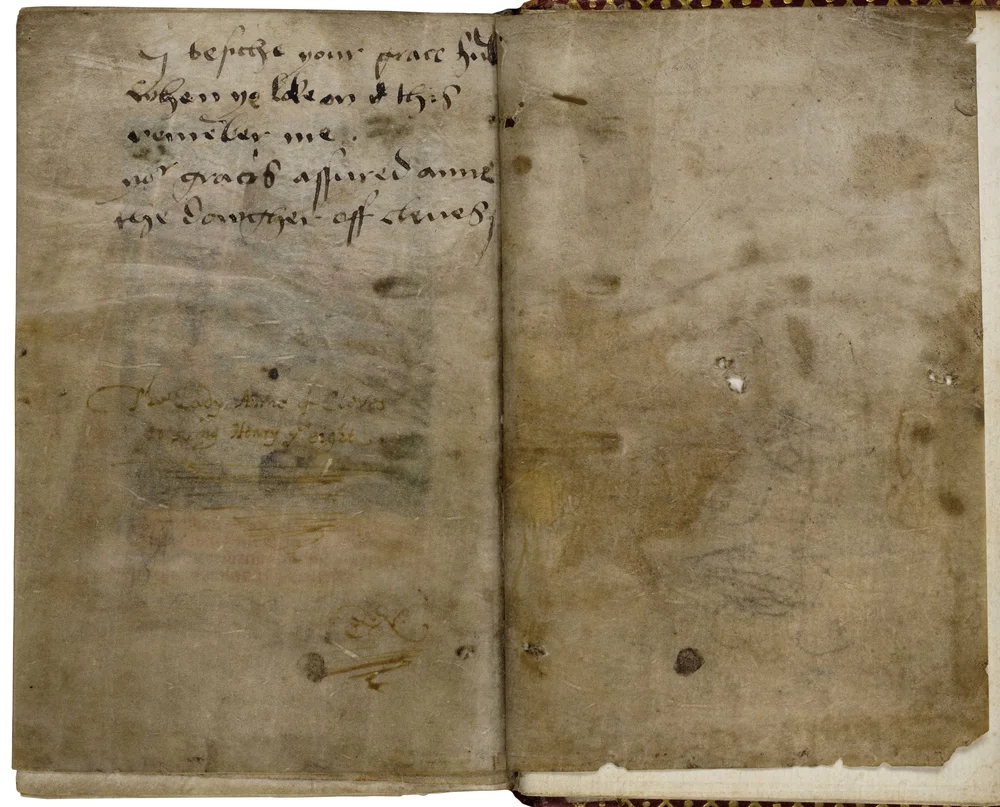 I besiche your grace hu
when ye loke on this
remēber me
yor gracis assured anne
the dowgher off cleves
The Lady Anne of Cleves
to King Henry ye eight